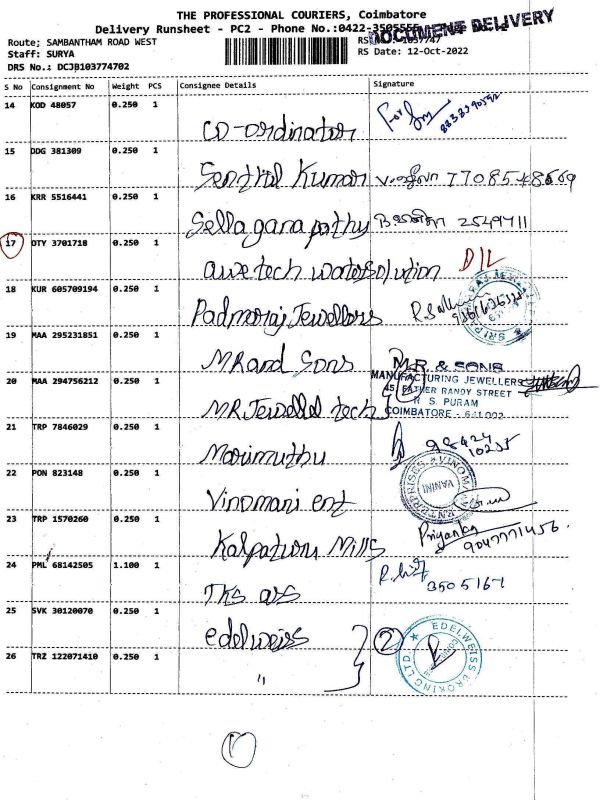 THE PROFESSIONAL COURIERS, Coimbatore
Delivery Runsheet - PC2 - Phone No.:0422-3505555
DOCUMENT DELIVERY
Route; SAMBANTHAM ROAD WEST
Staff: SURYA
RS Date: 12-Oct-2022
DRS No.: DCJB103774702
S No Consignment No Weight PCS Consignee Details Signature
14 KOD 48057 0.250 1
co-ordinator For
15 DDG 381309 0.250 1
Senthil Kumar 7708548669
16 KRR 5516441 0.250 1
Sellaganapathy 2549711
17 DTY 3701718 0.250 1
awe tech watersolution D/L
18 KUR 605709194 0.250 1
Padmaraj Jewellers
19 MAA 295231851 0.250 1
MR and Sons M.R. & SONS
MANUFACTURING JEWELLERS
20 MAA 294756212 0.250 1
45, FATHER RANDY STREET
R S. PURAM
MR Jewellel tech COIMBATORE - 641 002
21 TRP 7846029 0.250 1
Marimuthu 98424
10235
22 PON 823148 0.250 1
Vinomani ent VANINI
23 TRP 1570260 0.250 1
Kalpatharu Mills Priyanka
9047771456
24 PML 68142505 1.100 1
TKS 3505167
25 SVK 30120070 0.250 1
edelweiss 2 EDELWEISS BROKING LTD.
26 TRZ 122071410 0.250 1
"